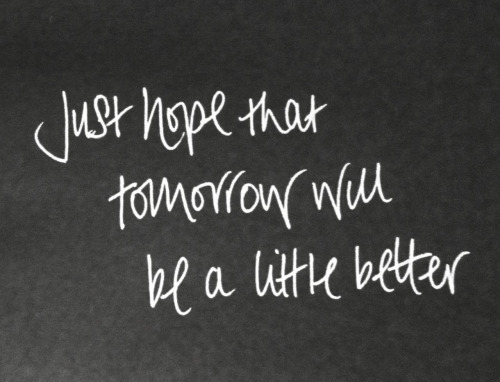 Just hope that
tomorrow will
be a little better